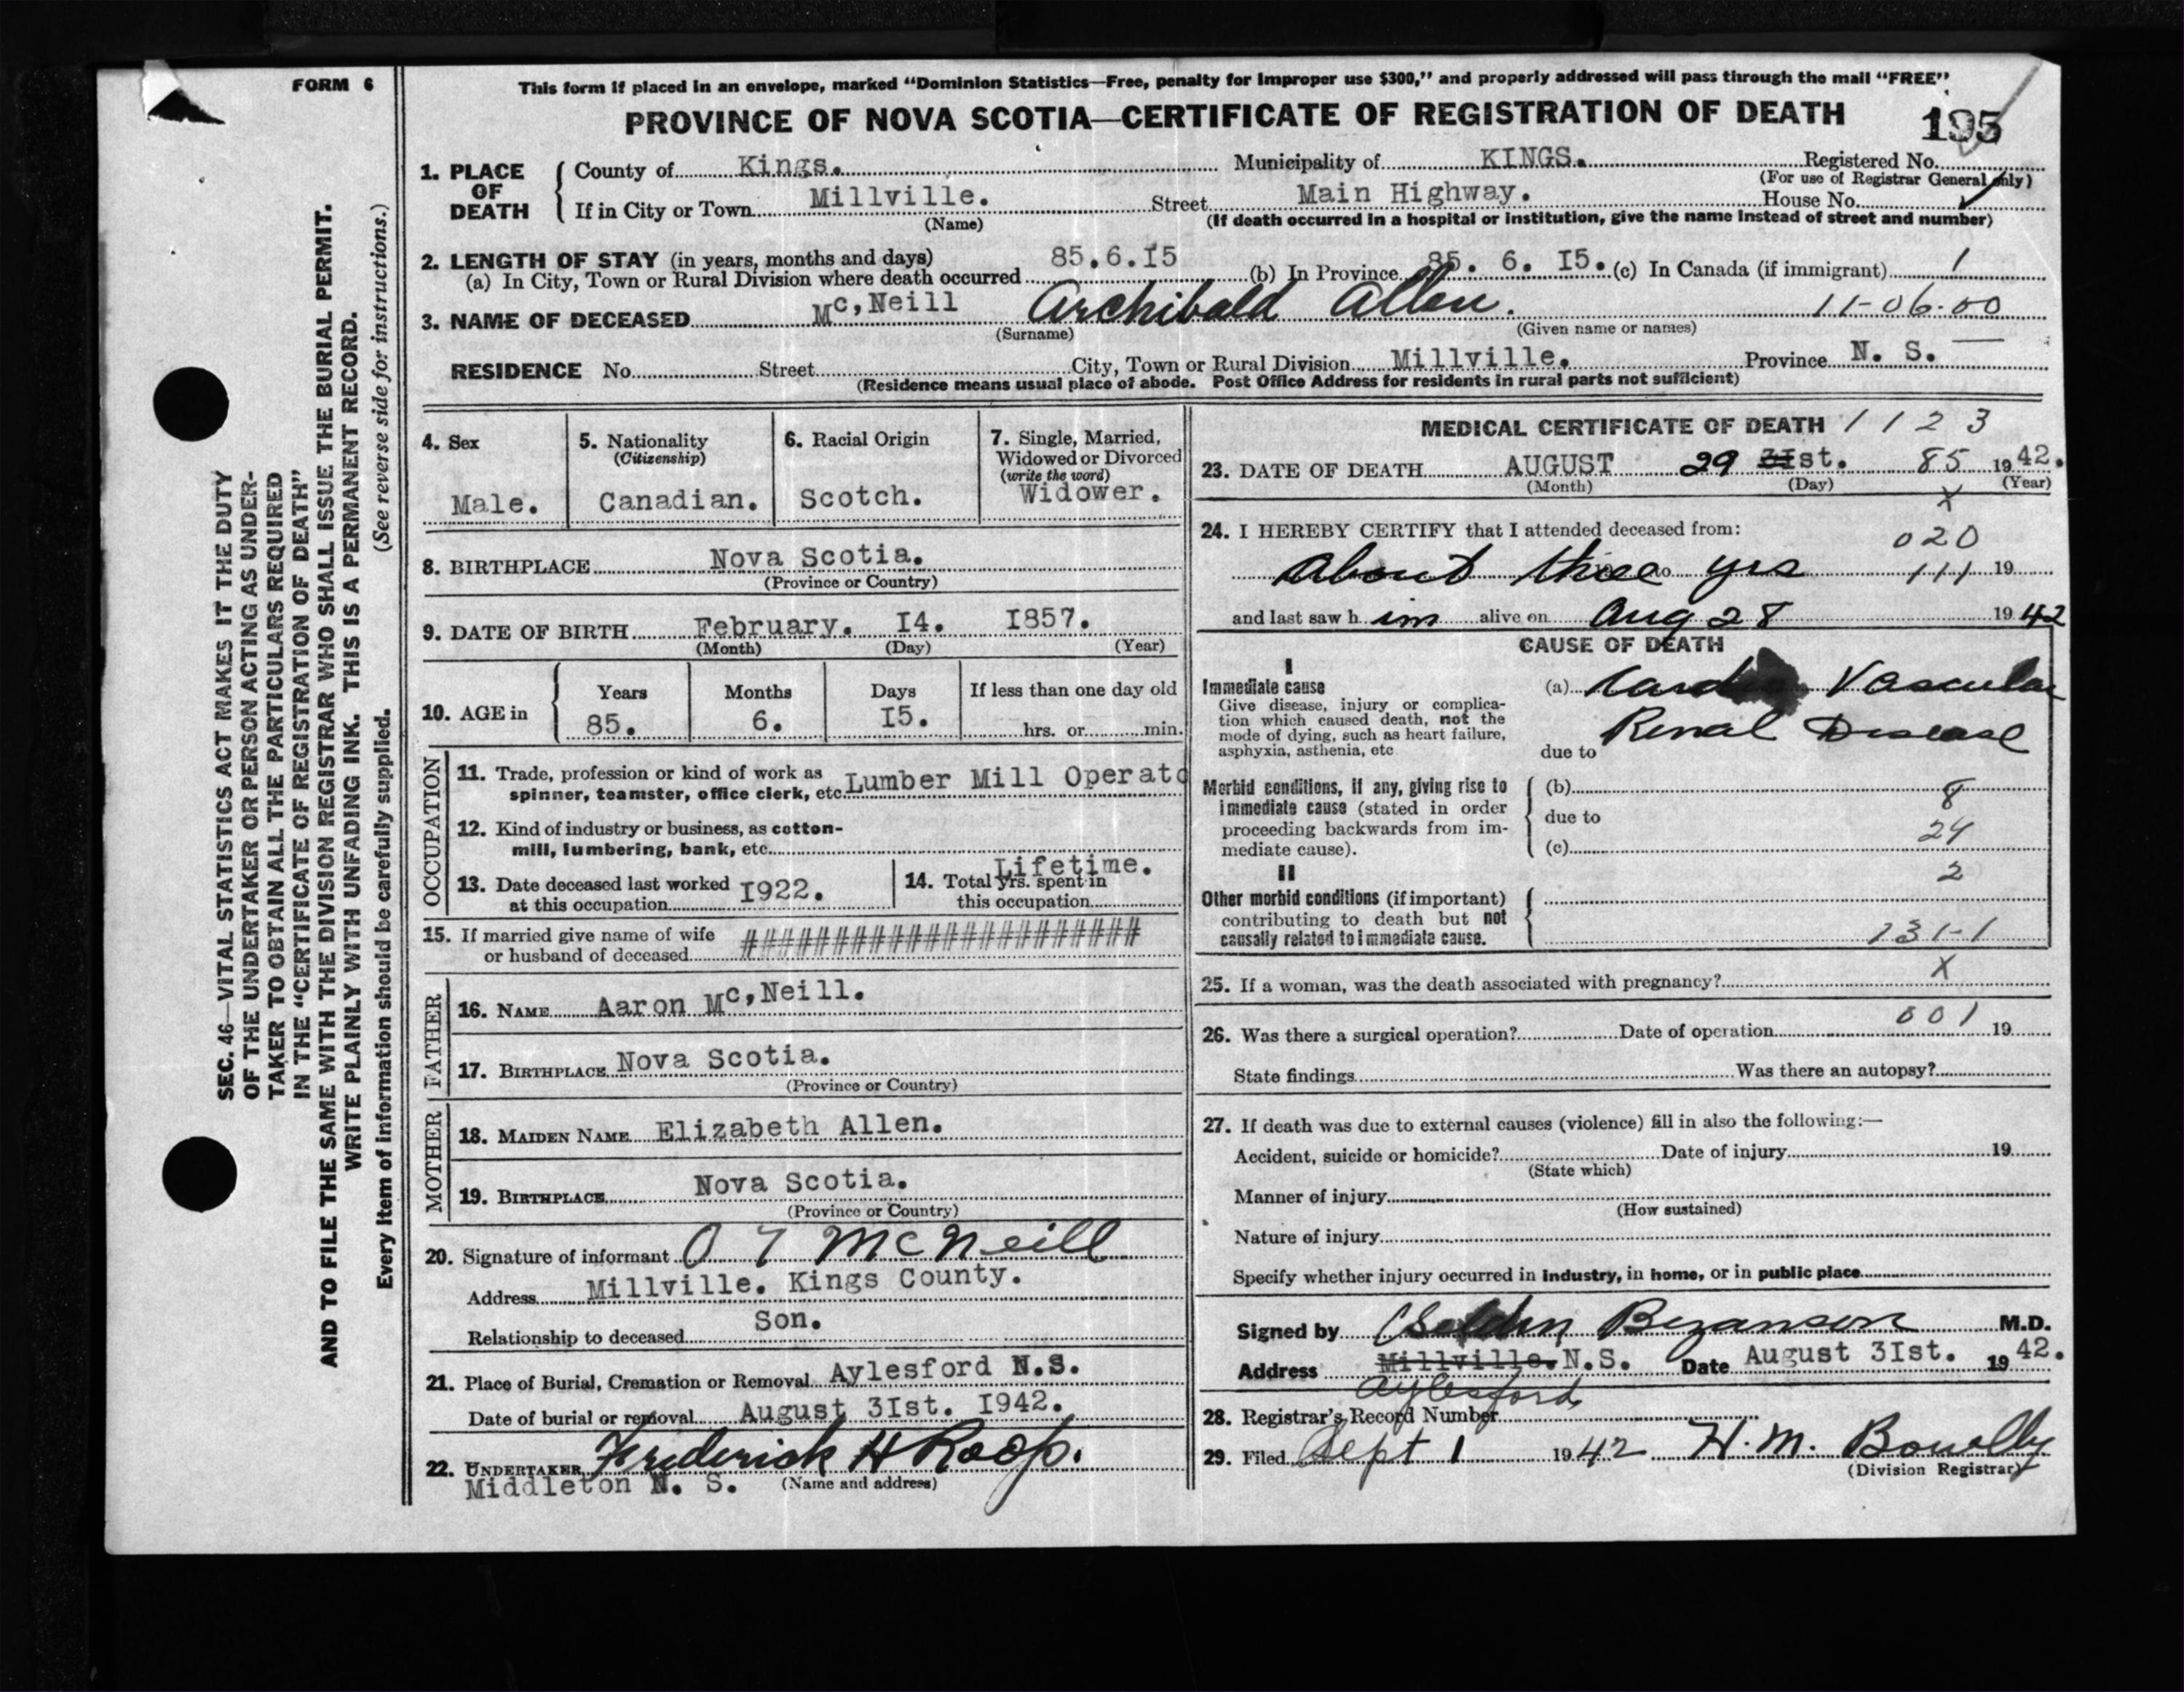 FORM 6
This form if placed in an envelope, marked “Dominion Statistics—Free, penalty for improper use $300,” and properly addressed will pass through the mail “FREE”
PROVINCE OF NOVA SCOTIA—CERTIFICATE OF REGISTRATION OF DEATH
195
SEC. 46—VITAL STATISTICS ACT MAKES IT THE DUTY
OF THE UNDERTAKER OR PERSON ACTING AS UNDER-
TAKER TO OBTAIN ALL THE PARTICULARS REQUIRED
IN THE “CERTIFICATE OF REGISTRATION OF DEATH”
AND TO FILE THE SAME WITH THE DIVISION REGISTRAR WHO SHALL ISSUE THE BURIAL PERMIT.
WRITE PLAINLY WITH UNFADING INK. THIS IS A PERMANENT RECORD.
Every item of information should be carefully supplied. (See reverse side for instructions.)
1. PLACE OF DEATH
County of Kings. Municipality of KINGS. Registered No.
(For use of Registrar General only)
If in City or Town Millville. Street Main Highway. House No.
(Name) (If death occurred in a hospital or institution, give the name instead of street and number)
2. LENGTH OF STAY (in years, months and days)
(a) In City, Town or Rural Division where death occurred 85.6.I5 (b) In Province 85. 6. I5. (c) In Canada (if immigrant) 1
3. NAME OF DECEASED Mc,Neill Archibald Allen. 11-06-00
(Surname) (Given name or names)
RESIDENCE No. Street City, Town or Rural Division Millville. Province N. S.
(Residence means usual place of abode. Post Office Address for residents in rural parts not sufficient)
4. Sex
Male.
5. Nationality
(Citizenship)
Canadian.
6. Racial Origin
Scotch.
7. Single, Married,
Widowed or Divorced
(write the word)
Widower.
8. BIRTHPLACE Nova Scotia.
(Province or Country)
9. DATE OF BIRTH February. I4. I857.
(Month) (Day) (Year)
10. AGE in
Years Months Days If less than one day old
85. 6. I5. hrs. or min.
OCCUPATION
11. Trade, profession or kind of work as
spinner, teamster, office clerk, etc. Lumber Mill Operato
12. Kind of industry or business, as cotton-
mill, lumbering, bank, etc.
13. Date deceased last worked
at this occupation I922.
14. Total yrs. spent in
this occupation Lifetime.
15. If married give name of wife
or husband of deceased ######################
FATHER
16. NAME Aaron Mc,Neill.
17. BIRTHPLACE Nova Scotia.
(Province or Country)
MOTHER
18. MAIDEN NAME Elizabeth Allen.
19. BIRTHPLACE Nova Scotia.
(Province or Country)
20. Signature of informant McNeill
Address Millville. Kings County.
Relationship to deceased Son.
21. Place of Burial, Cremation or Removal Aylesford N.S.
Date of burial or removal August 3Ist. I942.
22. UNDERTAKER Frederick H Roop.
Middleton N. S. (Name and address)
MEDICAL CERTIFICATE OF DEATH 1 1 2 3
23. DATE OF DEATH AUGUST 29 3Ist. 85 1942.
(Month) (Day) (Year)
X
24. I HEREBY CERTIFY that I attended deceased from:
020
About three to yrs 111 19
and last saw h im alive on Aug 28 1942
CAUSE OF DEATH
I
Immediate cause
Give disease, injury or complica-
tion which caused death, not the
mode of dying, such as heart failure,
asphyxia, asthenia, etc.
(a) Cardio Vascular
Renal Disease
due to
Morbid conditions, if any, giving rise to
immediate cause (stated in order
proceeding backwards from im-
mediate cause).
(b) 8
due to 24
(c)
2
II
Other morbid conditions (if important)
contributing to death but not
causally related to immediate cause.
131-1
25. If a woman, was the death associated with pregnancy? X
26. Was there a surgical operation? Date of operation 001 19
State findings Was there an autopsy?
27. If death was due to external causes (violence) fill in also the following:—
Accident, suicide or homicide? Date of injury 19
(State which)
Manner of injury
(How sustained)
Nature of injury
Specify whether injury occurred in industry, in home, or in public place
Signed by Bezanson M.D.
Address Millville. N.S. Date August 3Ist. 1942.
Aylesford
28. Registrar’s Record Number
29. Filed Sept 1 1942 H. M.
(Division Registrar)